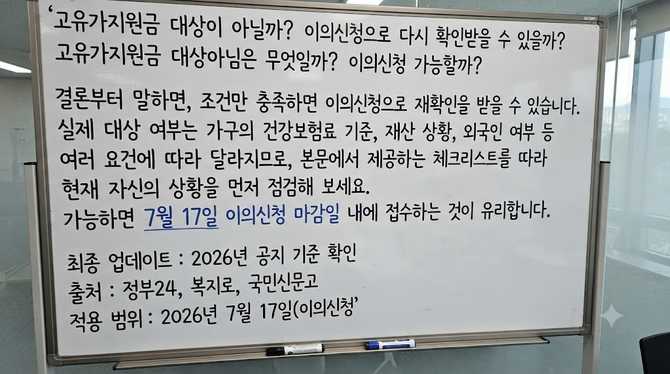 ‘고유가지원금 대상이 아닐까? 이의신청으로 다시 확인받을 수 있을까?
고유가지원금 대상아님은 무엇일까? 이의신청 가능할까?
결론부터 말하면, 조건만 충족하면 이의신청으로 재확인을 받을 수 있습니다.
실제 대상 여부는 가구의 건강보험료 기준, 재산 상황, 외국인 여부 등
여러 요건에 따라 달라지므로, 본문에서 제공하는 체크리스트를 따라
현재 자신의 상황을 먼저 점검해 보세요.
가능하면 7월 17일 이의신청 마감일 내에 접수하는 것이 유리합니다.
최종 업데이트 : 2026년 공지 기준 확인
출처 : 정부24, 복지로, 국민신문고
적용 범위 : 2026년 7월 17일(이의신청’